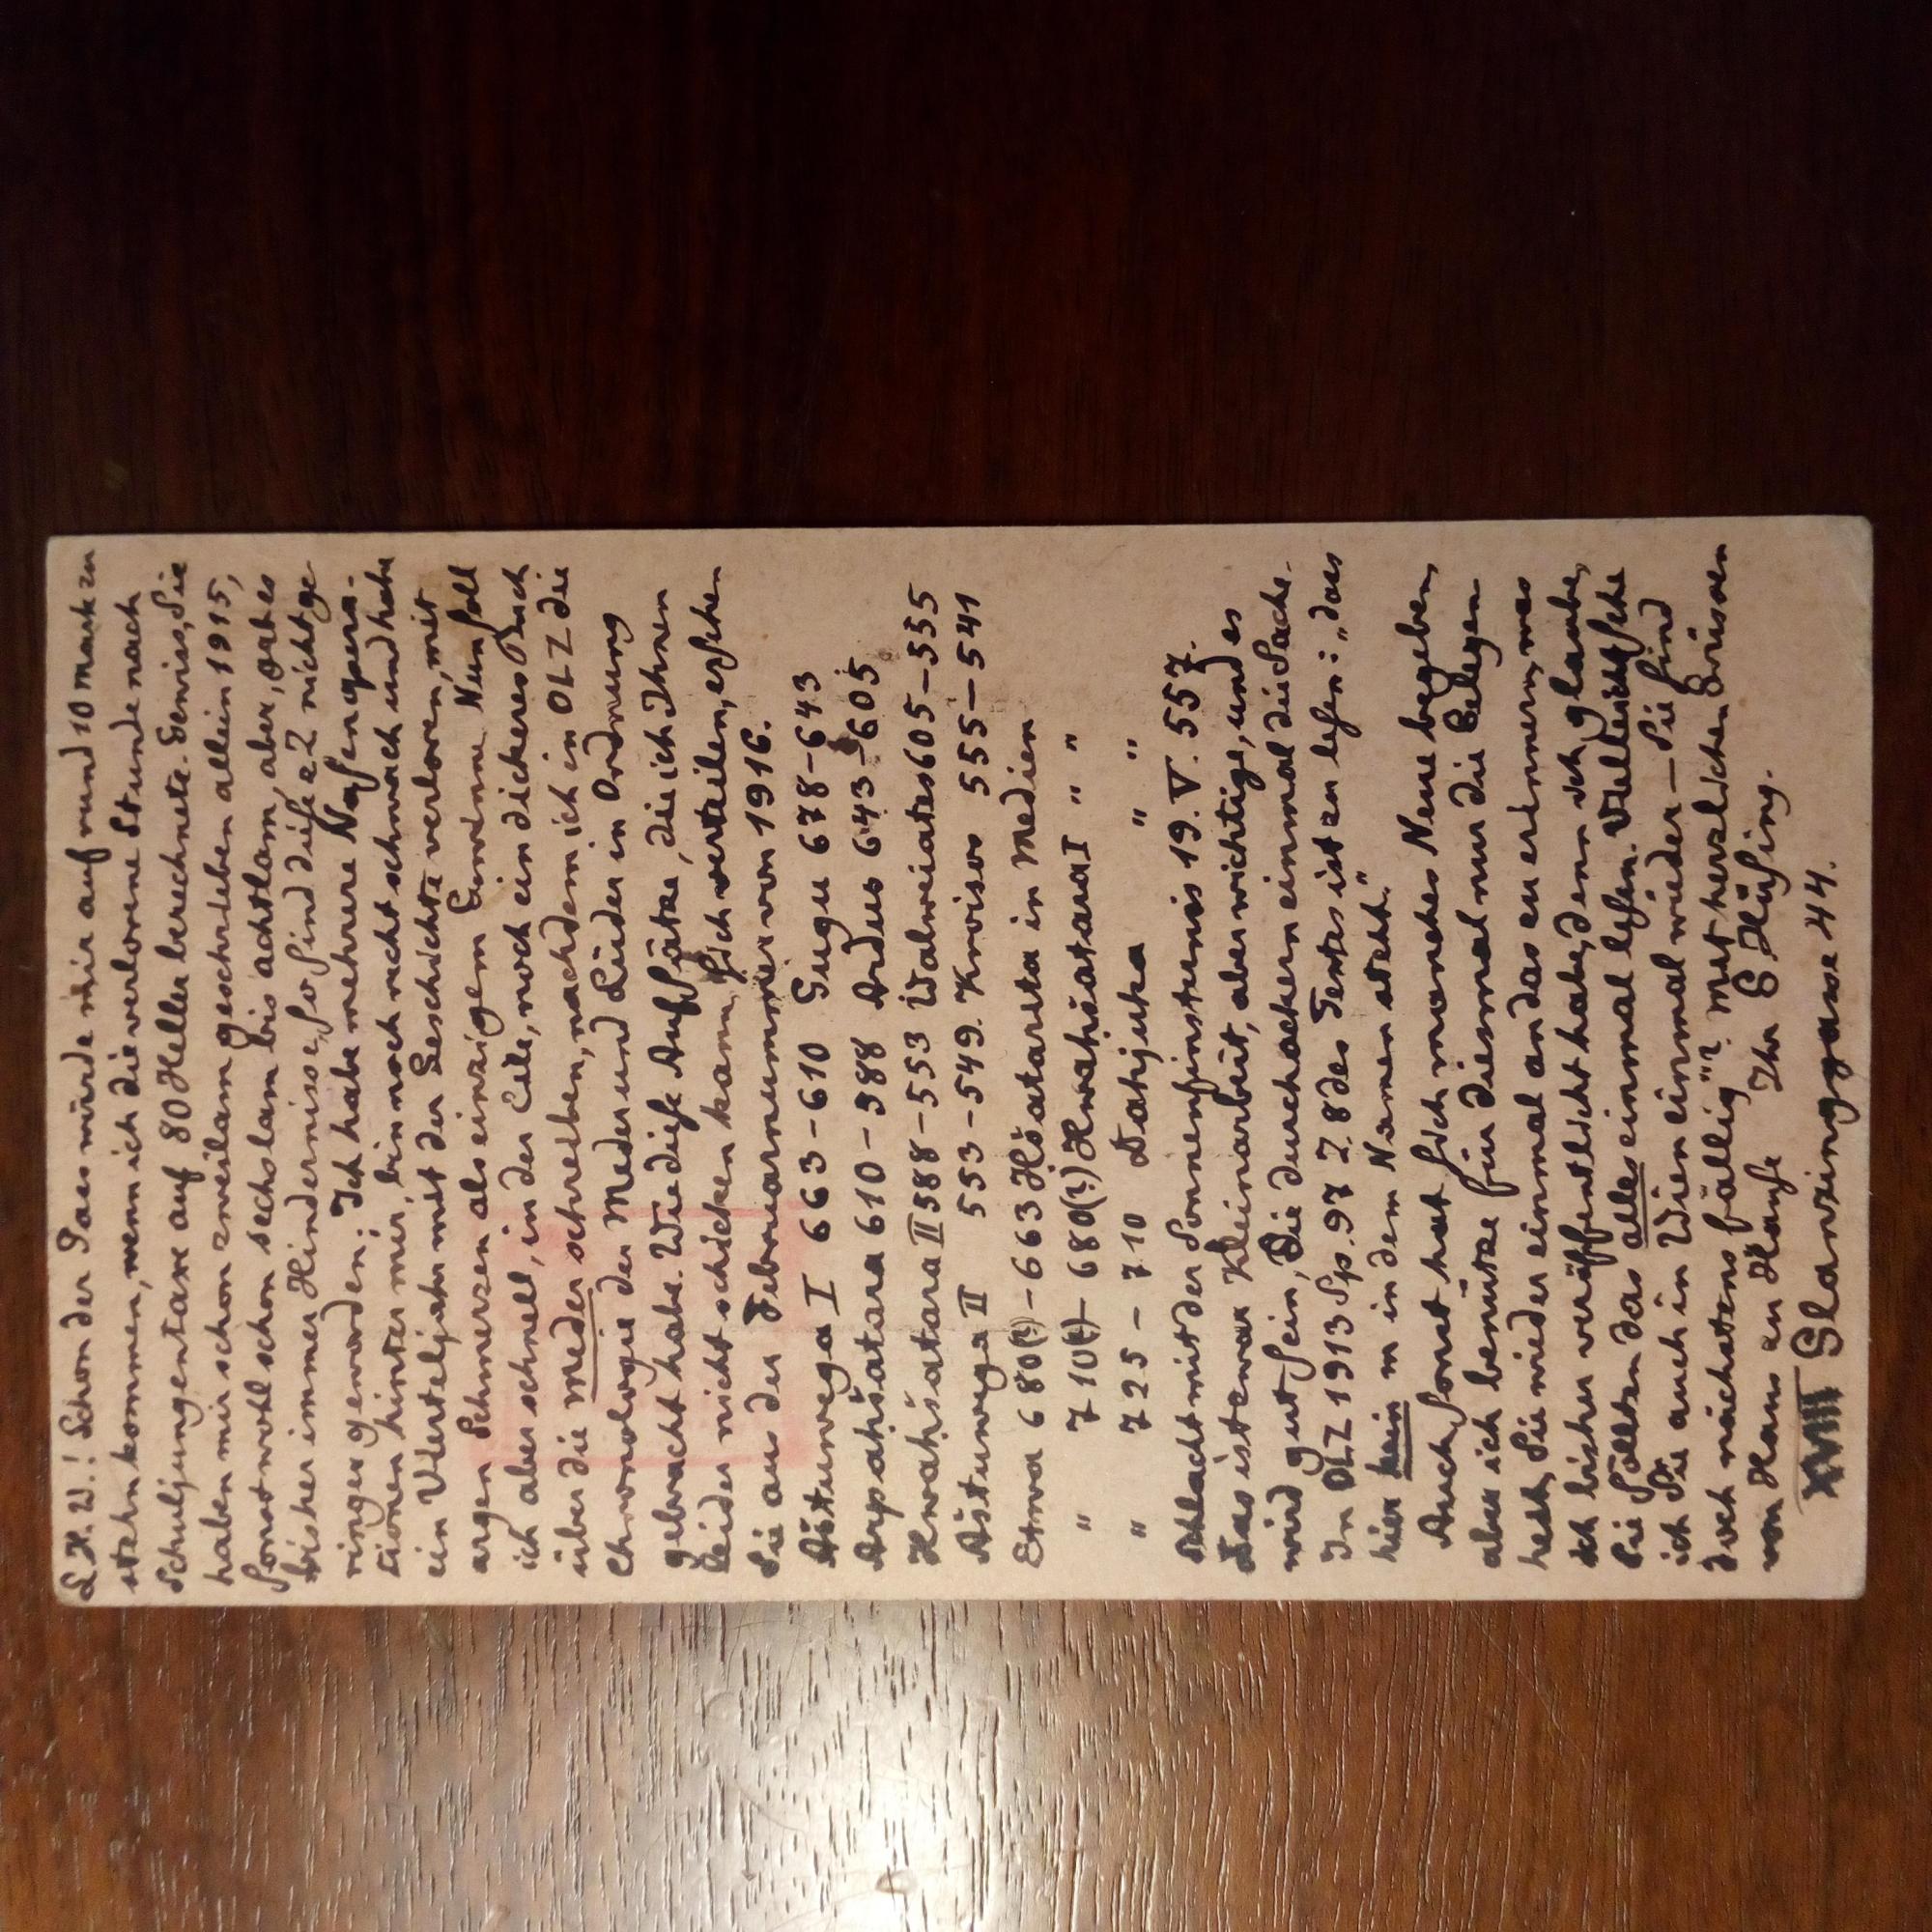 L.H.W.! Schon der Pass würde mir auf rund 10 mark zu
stehn kommen, wenn ich die verlorene Stunde nach
Schuljungentaxe auf 80 Heller berechnete. Gewiss, Sie
haben mir schon zweilam geschrieben allein 1915,
sonst wohl schon sechslam bis achtlam, aber, ohes
bisher immer Hindernisse, so sind diese 2 nicht ge
ringer geworden: Ich habe mehrere Nasenopera-
tionen hinter mir, bin noch recht schwach und habe
ein Vierteljahr mit der Geschichte verloren, mit
argen Schmerzen als einzigem Gewinne. Nun soll
ich aber schnell, in der Eile, noch ein dickeres Buch
über die Meder schreiben, nachdem ich in OLZ die
Chronologie der Meder und Lüder in Ordnung
gebracht habe. Wie diese Aufsätze, die ich Ihnen
leider nicht schicken kann, sich verteilen, ersehen
Sie aus der Februarnummer von 1916.
Aštuwega I 663-610 Gugu 678-643
Arpahšatara 610-588 Ardus 643-605
Hwahšatara II 588-553 Walweiates 605-555
Aštuwega II 553-549. Kroisos 555-541
Etwa 680(?)-663 Hšatarita in Medien
" 710(?)-680(?) Hwahšatara I " "
" 725-710 Dahjuka " "
Schlacht mit der Sonnenfinsternis 19. V. 557.
Das ist zwar Kleinarbeit, aber wichtige, und es
wird gut sein, Sie durchackern einmal die Sache.
In OLZ 1913 Sp. 97 Z. 8 des Textes ist zu lesen: „dass
hier kein m in dem Namen steht."
Auch sonst hat sich manches Neue begeben,
aber ich benütze für diesmal nur die Gelegen
heit, Sie wieder einmal an das zu erinnern, was
ich bisher veröffentlicht habe, denn ich glaube,
Sie sollten das alles einmal lesen. Vielleicht sehe
ich Sie auch in Wien einmal wieder — Sie sind
doch nächstens fällig"? Mit herzlichen Grüssen
von Haus zu Hause Ihr G Hüsing.
XVIII Glanzinggasse 44.